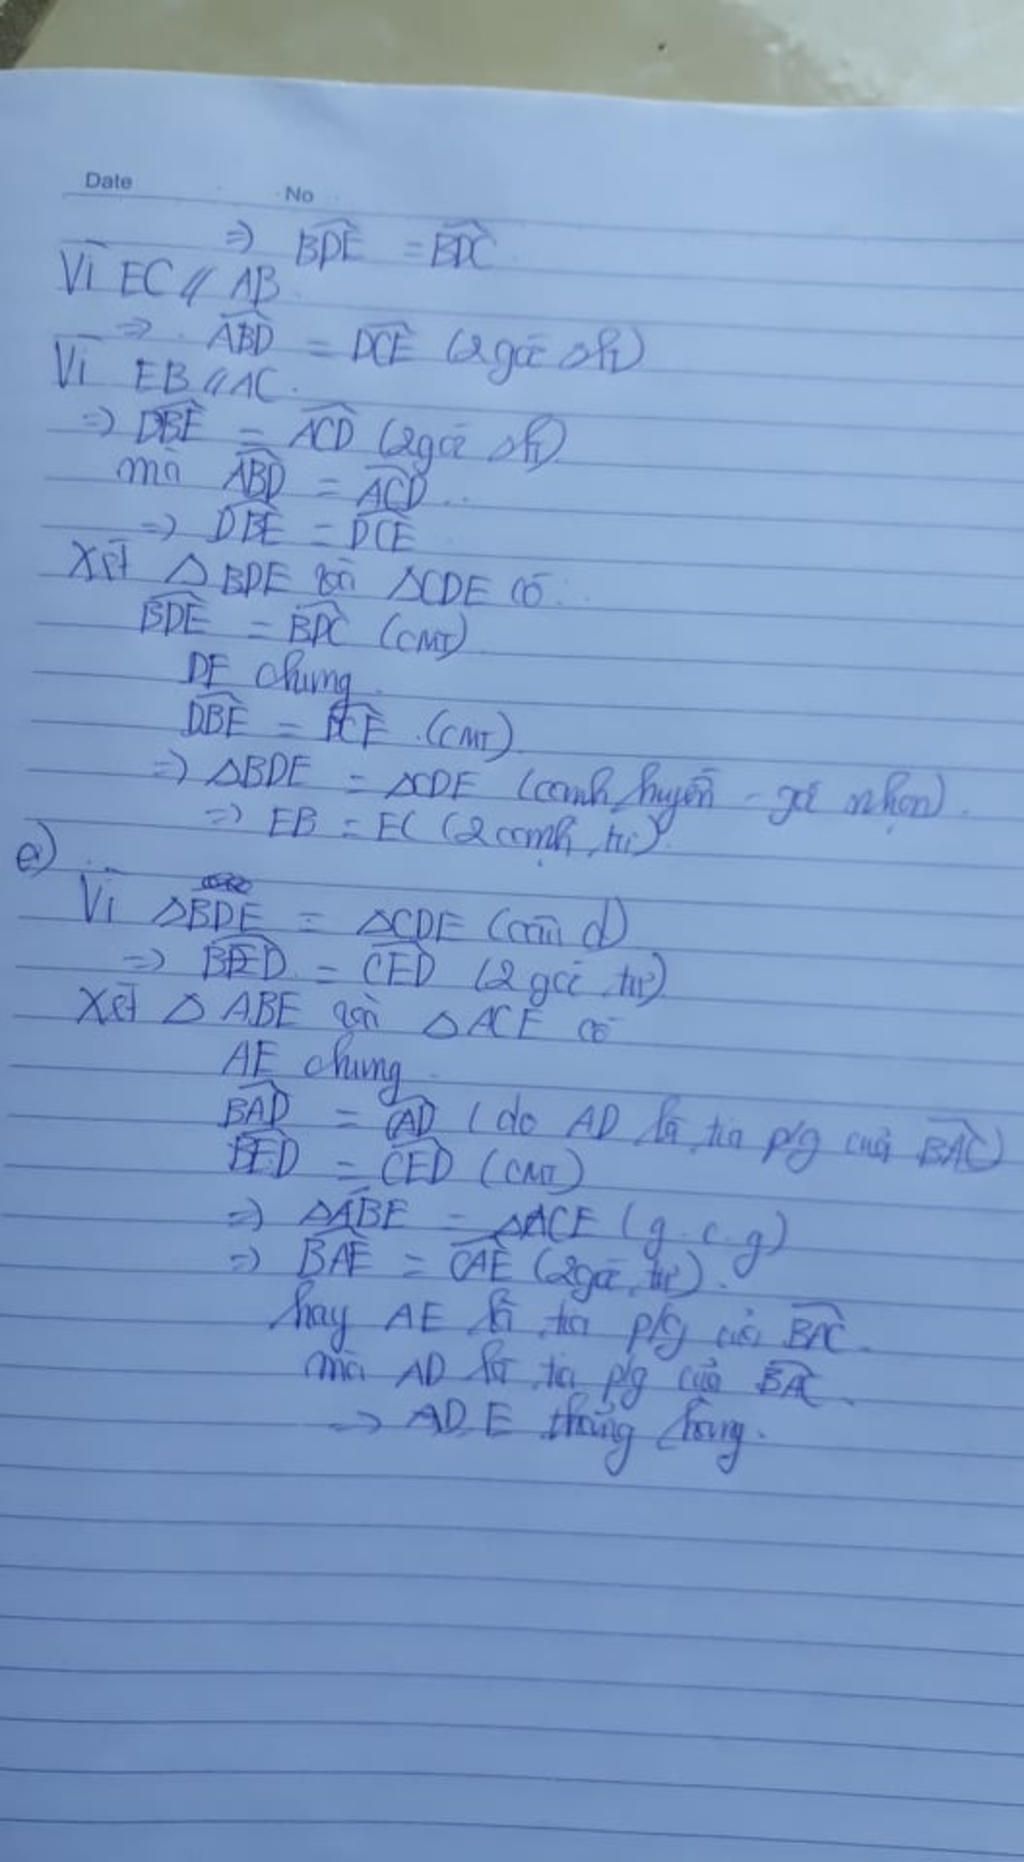 Date No
⇒ BDE = BDC
Vì EC // AB
⇒ ABD = DCE (2 góc slt)
Vì EB // AC.
⇒ DBE = ACD (2 góc slt)
mà ABD = ACD
⇒ DBE = DCE
Xét △ BDE và △CDE có:
BDE = BDC (CMT)
DE chung
DBE = DCE (CMT)
⇒ △BDE = △CDE (cạnh huyền - góc nhọn).
⇒ EB = EC (2 cạnh tư)
e)
Vì △BDE = △CDE (câu d)
⇒ BED = CED (2 góc tư)
Xét △ ABE và △ ACE có
AE chung
BAD = CAD (do AD là tia p/g của BAC)
BED = CED (CMT)
⇒ △ABE = △ACE (g.c.g)
⇒ BAE = CAE (2 góc tư).
hay AE là tia p/g của BAC.
mà AD là tia p/g của BAC.
⇒ A D E thẳng hàng.